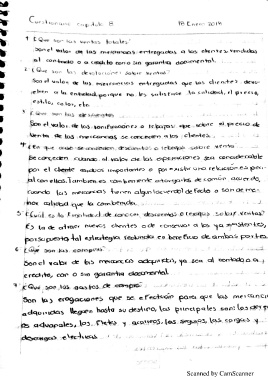 Cuestionario capitulo 8 18 Enero 2017
1 ¿Que son las ventas totales?
Son el valor de las mercancias entregadas a los clientes vendidas
al contado o a credito con o sin garantia documental.
2 ¿Que son las devoluciones sobre ventas?
Son el valor de las mercancias entregadas que los clientes devuelven a la entidad porque no les satisface la calidad, el precio,
estilo, color, etc.
3 ¿Que son los descuentos
Son el valor de las bonificaciones o rebajas que sobre el precio de
venta de las mercancias se conceden a los clientes.
4 ¿En que caso se conceden descuentos o rebajas sobre ventas
Se conceden cuando el valor de las operaciones sea considerable
por el cliente
con ellos. Tambien es comunmente otorgarlos de común acuerdo,
cuando las mercancias tienen algun defecto o son de menor calidad que la combenida.
5 ¿Cuál es la finalidad de conceder descuentos o rebajas sobre ventas?
Es la de atraer nuevos clientes o de conservar a los ya existentes,
por supuesto tal estrategia redunda en beneficio de ambas partes.
6 ¿Que son las compras?
Son el valor de las mercancias adquiridas, ya sea al contado o a
credito, con o sin garantia documental.
7 ¿Que son los gastos de compra?
Son las erogaciones que se efectúan para que las mercancias
adquiridas lleguen hasta su destino, las principales son los
aduanales, los fletes y acarreos, los seguros, las cargas y
descargas
Scanned by CamScanner